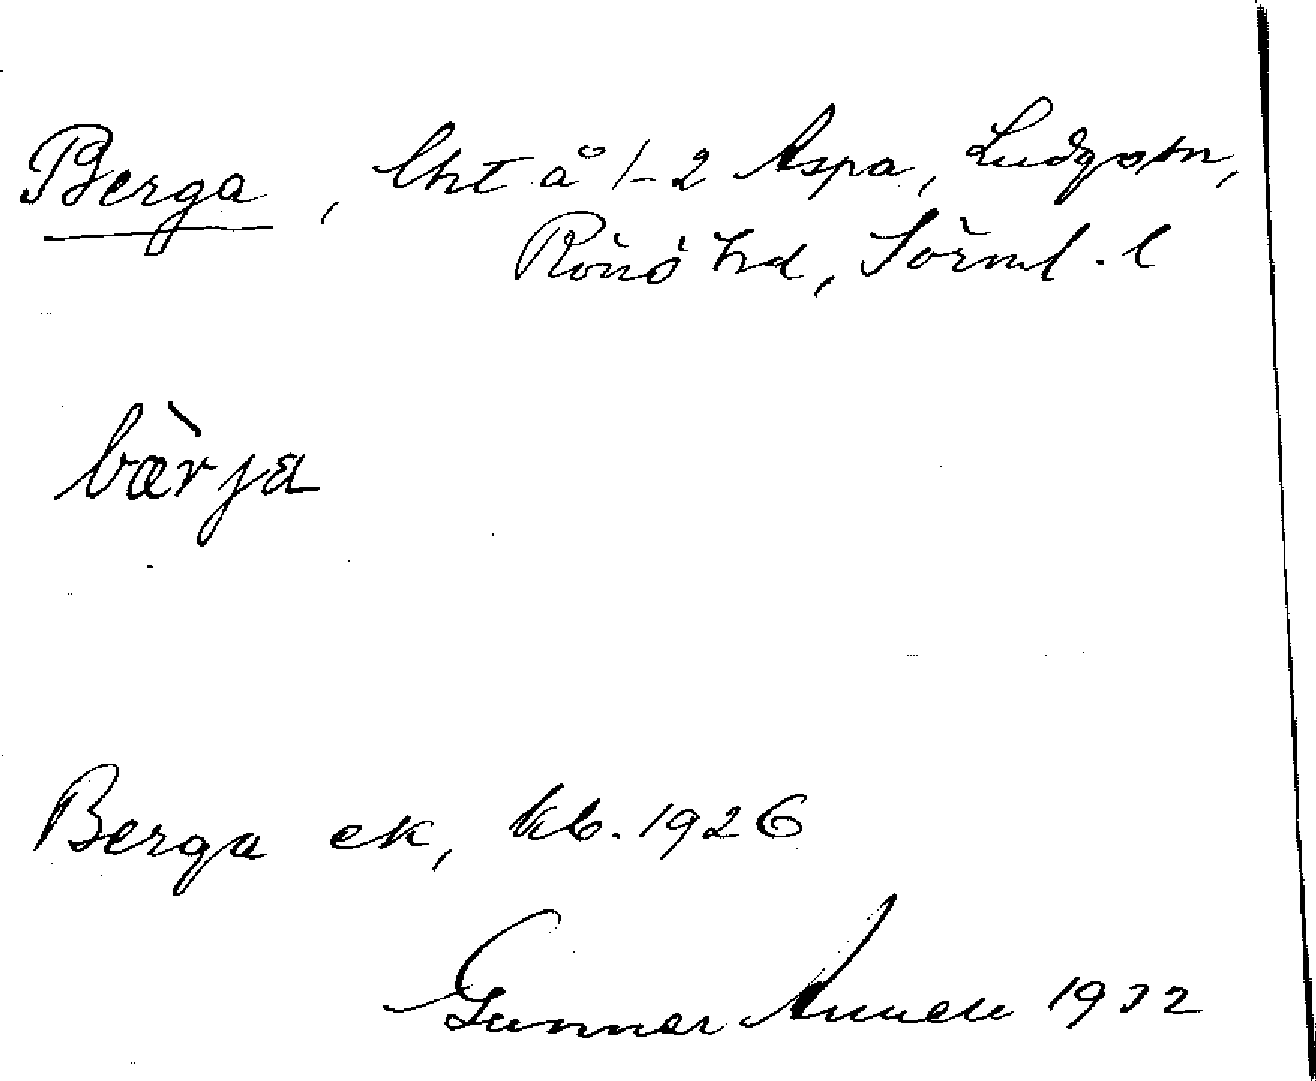 Berga, lht å 1-2 Aspa, Ludgo sn,
Rönö hd, Sörml. l
bærja
Berga ek, kb. 1926
Gunnar 1932